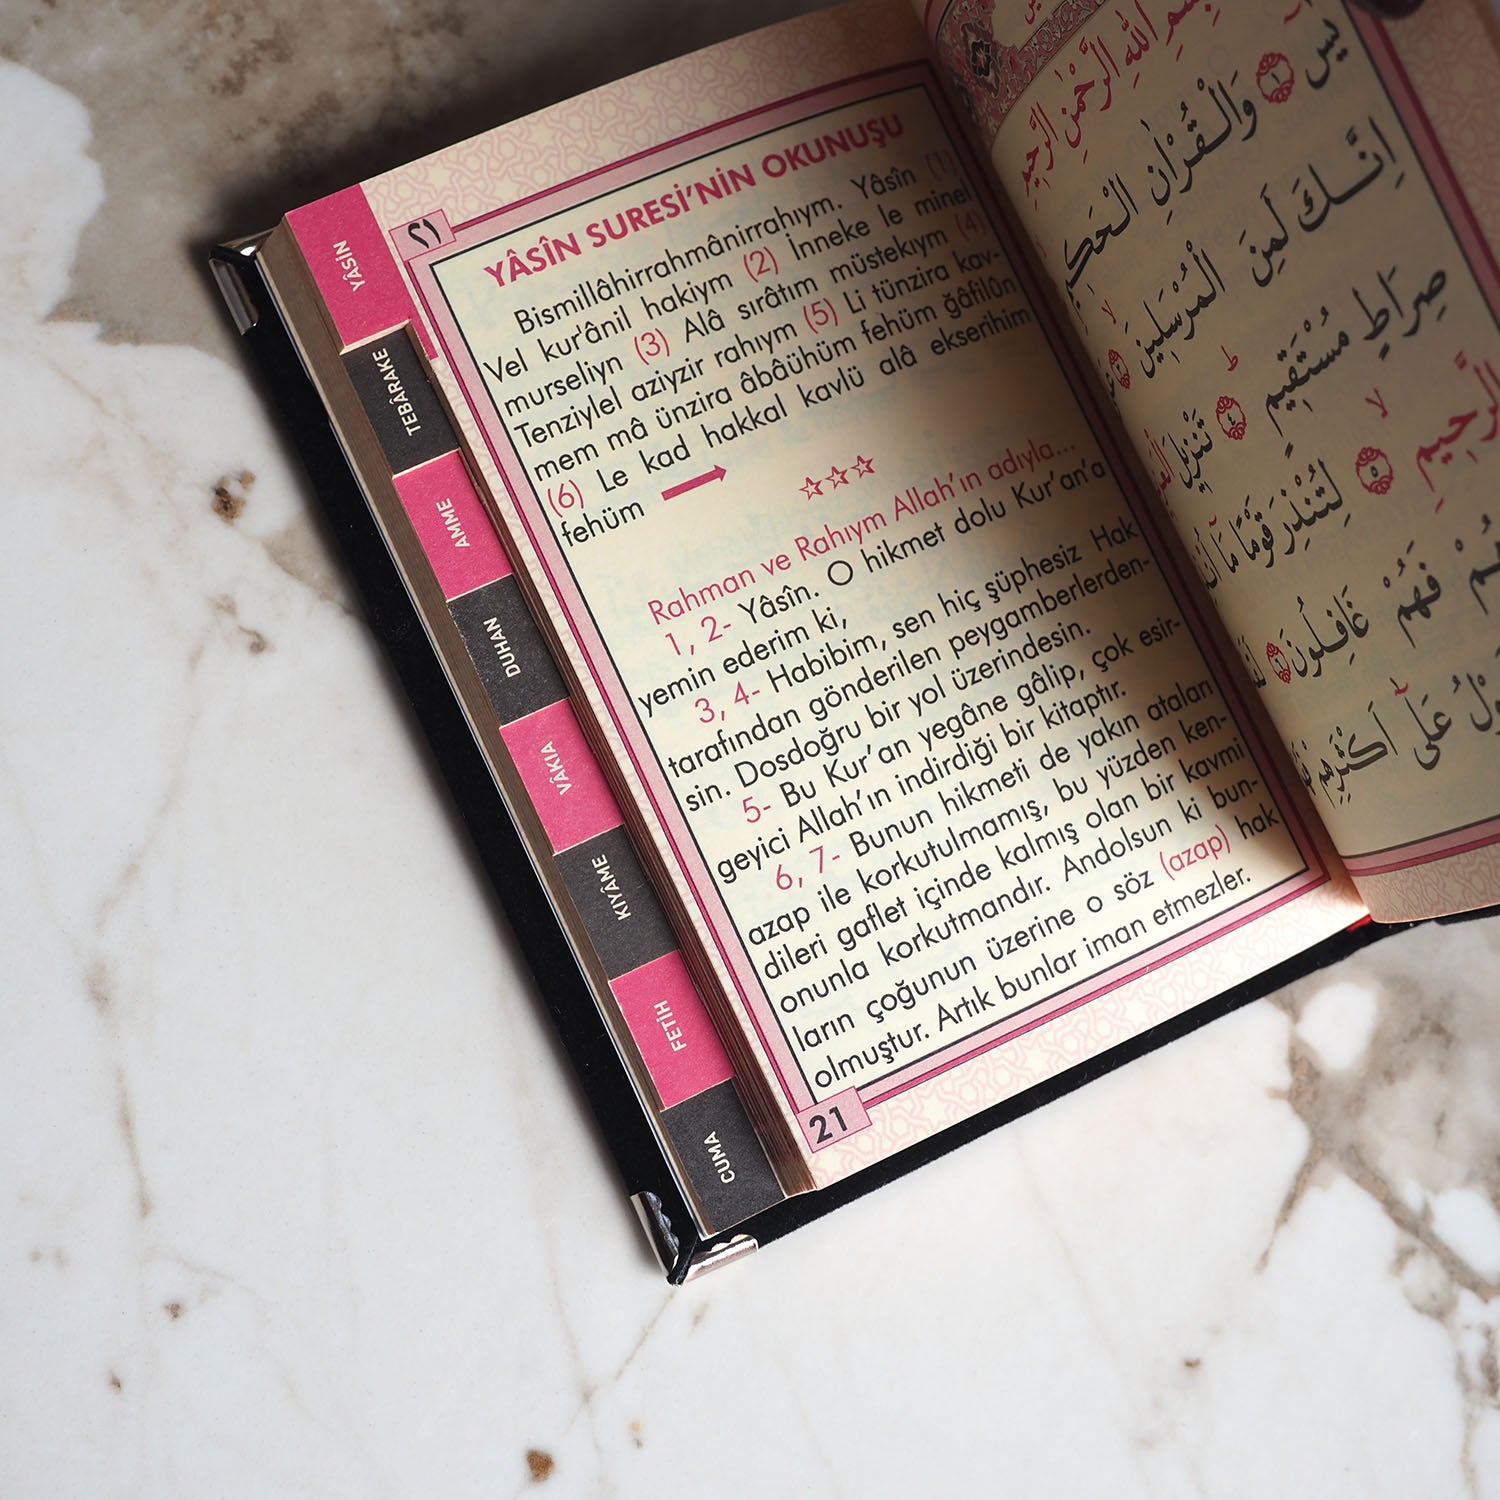 ٢١
YÂSÎN SURESİ'NİN OKUNUŞU
Bismillâhirrahmânirrahıym. Yâsîn (1)
Vel kur'ânil hakiym (2) İnneke le minel
murseliyn (3) Alâ sırâtım müstekıym (4)
Tenziylel aziyzir rahıym (5) Li tünzira kav-
mem mâ ünzira âbâühüm fehüm ğâfilûn
(6) Le kad hakkal kavlü alâ ekserihim
fehüm
Rahman ve Rahıym Allah'ın adıyla...
1, 2- Yâsîn. O hikmet dolu Kur'an'a
yemin ederim ki,
3, 4- Habibim, sen hiç şüphesiz Hak
tarafından gönderilen peygamberlerden-
sin. Dosdoğru bir yol üzerindesin.
5- Bu Kur'an yegâne gâlip, çok esir-
geyici Allah'ın indirdiği bir kitaptır.
6, 7- Bunun hikmeti de yakın ataları
azap ile korkutulmamış, bu yüzden ken-
dileri gaflet içinde kalmış olan bir kavmi
onunla korkutmandır. Andolsun ki bun-
ların çoğunun üzerine o söz (azap) hak
olmuştur. Artık bunlar iman etmezler.
21
YÂSİN
TEBÂRAKE
AMME
DUHAN
VÂKIA
KIYÂME
FETİH
CUMA
بِسْمِ اللّٰهِ الرَّحْمٰنِ الرَّحِيمِ
يٰسٓ ١ وَالْقُرْاٰنِ الْحَكِيمِ
اِنَّكَ لَمِنَ الْمُرْسَلِينَ ٣
صِرَاطٍ مُسْتَقِيمٍ ٤ تَنْزِيلَ
الرَّحِيمِ ٥ لِتُنْذِرَ قَوْمًا مَٓا
فَهُمْ غَافِلُونَ ٦
عَلٰٓى اَكْثَرِهِمْ